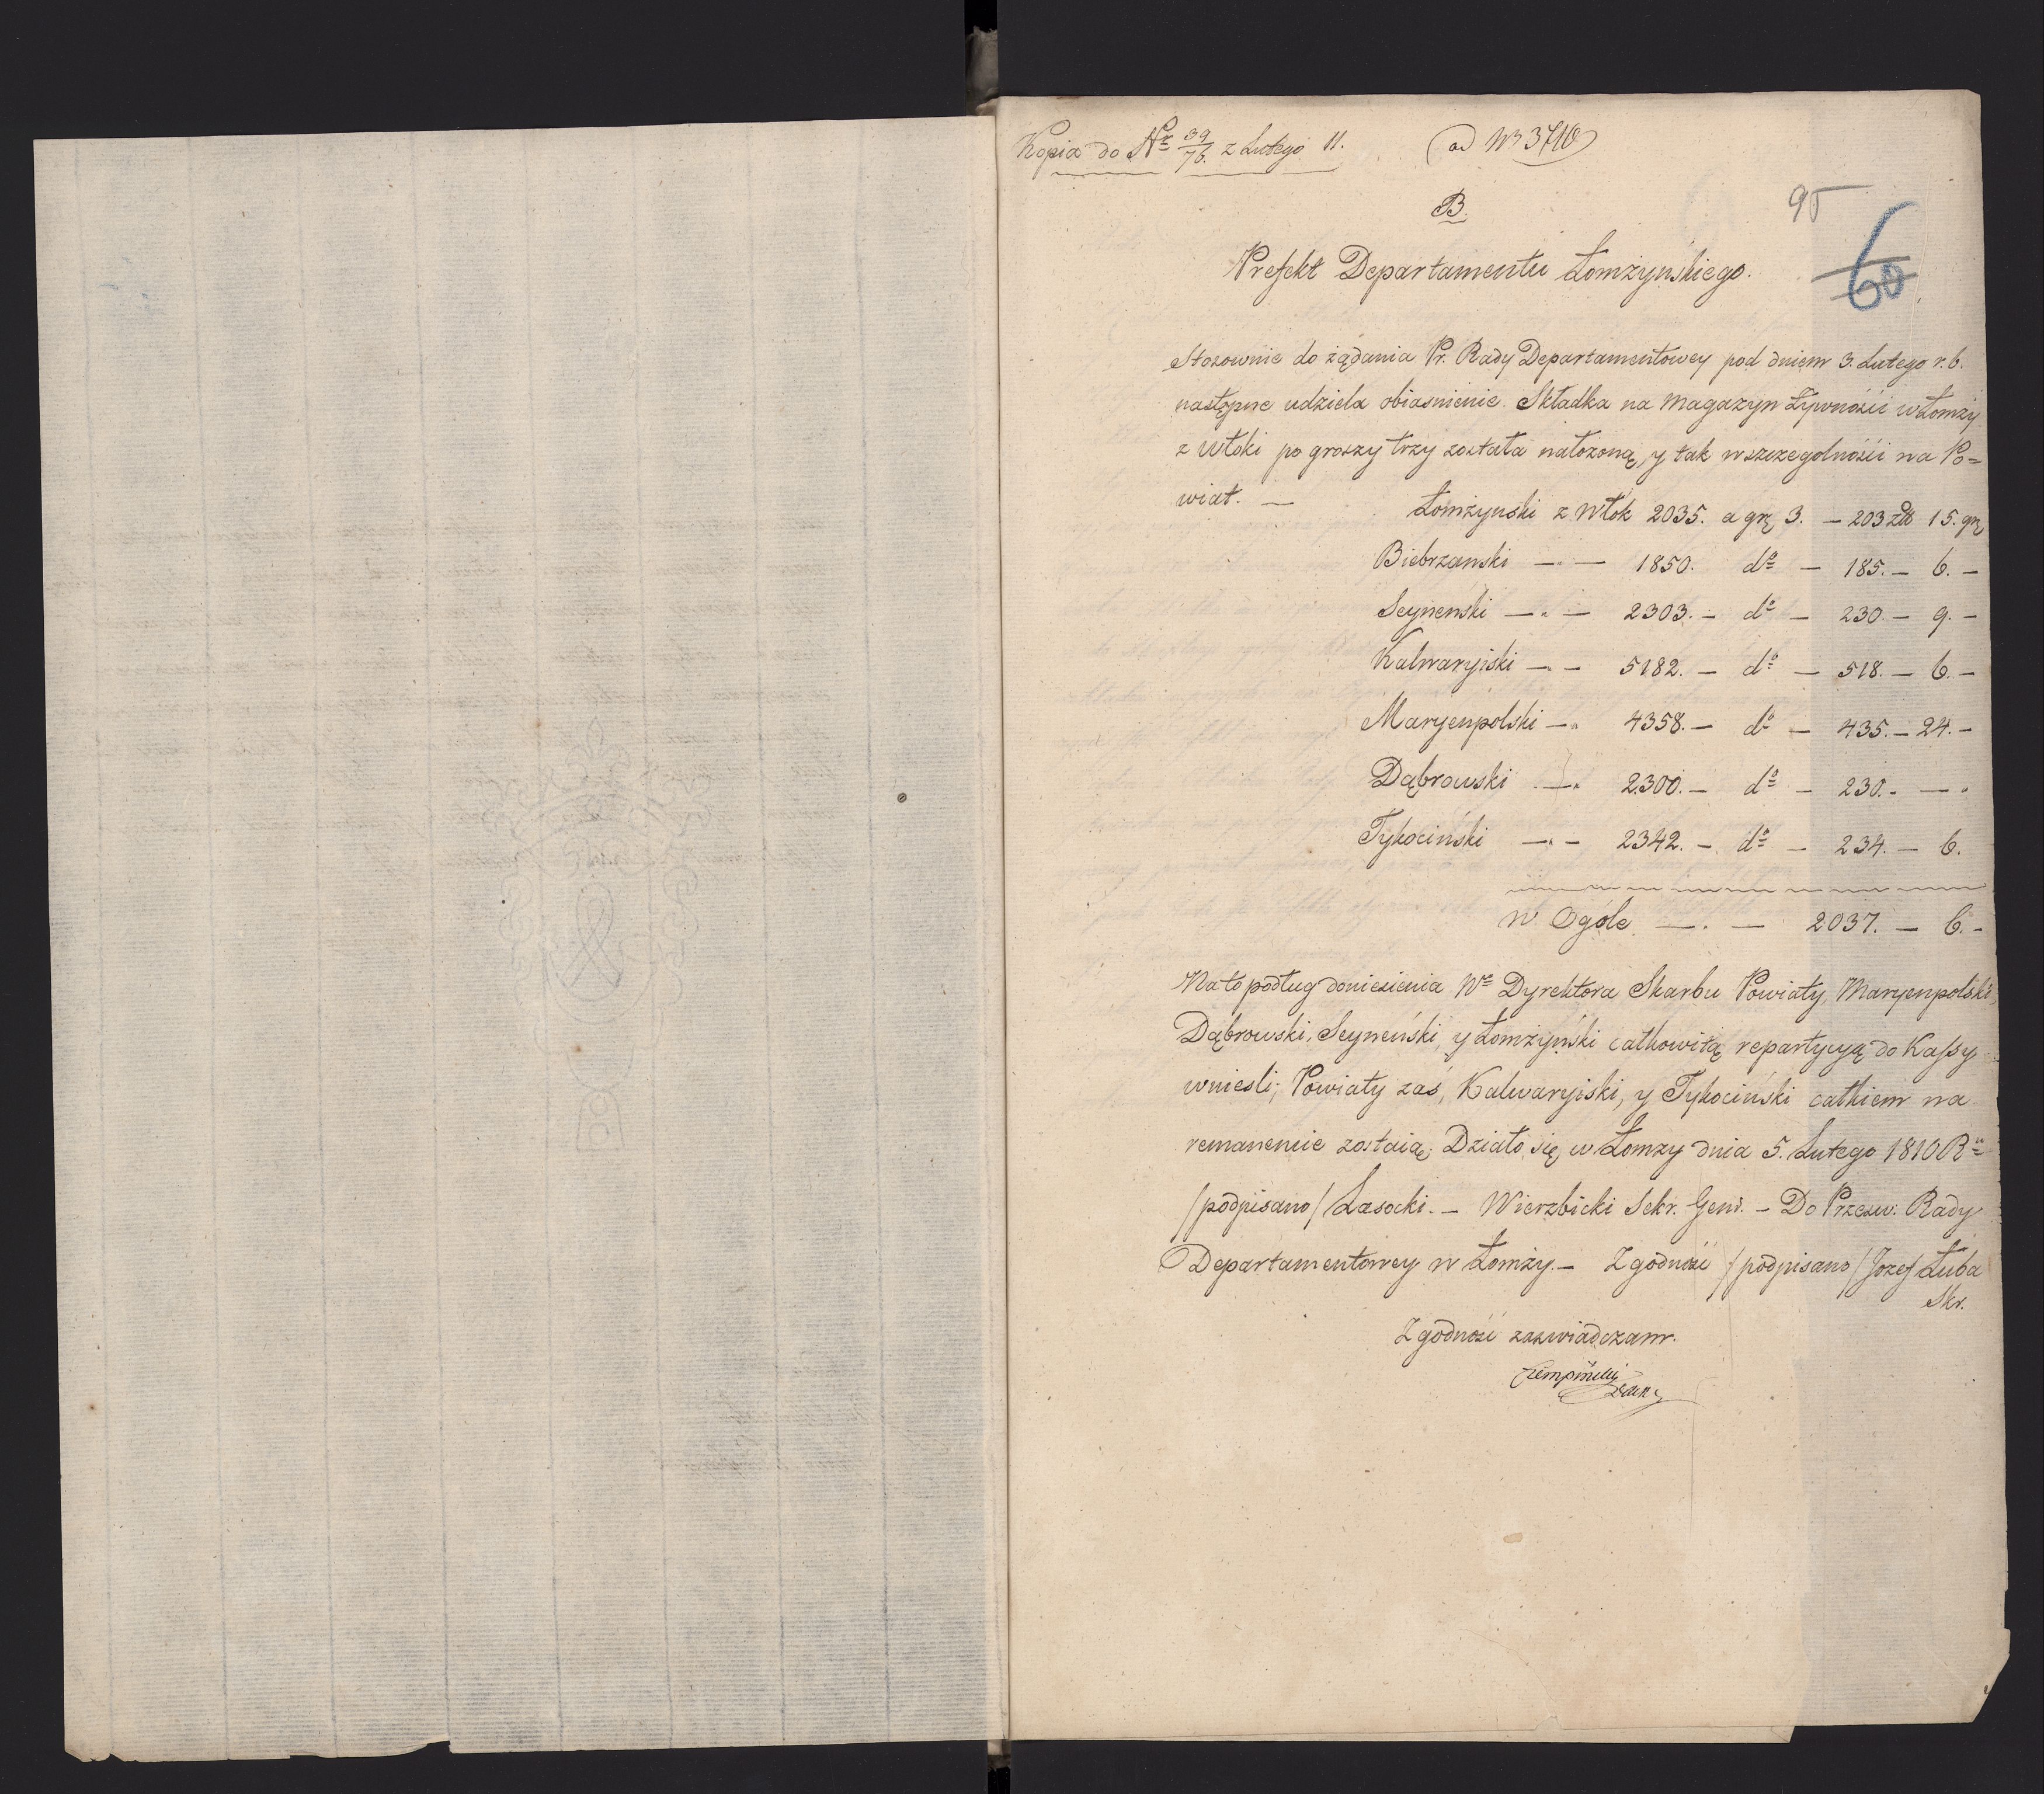 Kopia do Nr 39/76. z Lutego 11. ad Nr 3710
B.
95
60
Prefekt Departamentu Łomżyńskiego.
Stosownie do żądania Pr. Rady Departamentowey pod dniem 3. Lutego r. b.
następne udziela obiasnienie. Składka na Magazyn Żywności w Łomży
z włoki po groszy trzy została nałożoną, y tak w szczegolności na Po=
wiat. — Łomżynski z Włok 2035. a grę 3. — 203 zł 15. grę
Biebrzanski — „ — 1850. do — 185. — 6. —
Seynenski — „ — 2303. — do — 230 — 9. —
Kalwaryiski — „ — 5182. — do — 518. — 6. —
Maryenpolski — „ 4358. — do — 435. — 24. —
Dąbrowski — „ 2300. — do — 230. — — „
Tykociński — „ — 2342. — do — 234. — 6.
w Ogóle — . — 2037. — 6. —
Na to podług doniesienia We Dyrektora Skarbu Powiaty, Maryenpolski,
Dąbrowski, Seyneński, y Łomżyński całkowitą repartycyą do Kassy
wniesli; Powiaty zaś, Kalwaryiski, y Tykociński całkiem na
remanencie zostaią. Działo się w Łomzy dnia 5. Lutego 1810 Ru
/podpisano/ Lasocki. — Wierzbicki Sekr. Gen. — Do Przesw: Rady
Departamentowey w Łomży. — Zgodność /podpisano/ Jozef Łuba
Skr.
Zgodność zaswiadczam.